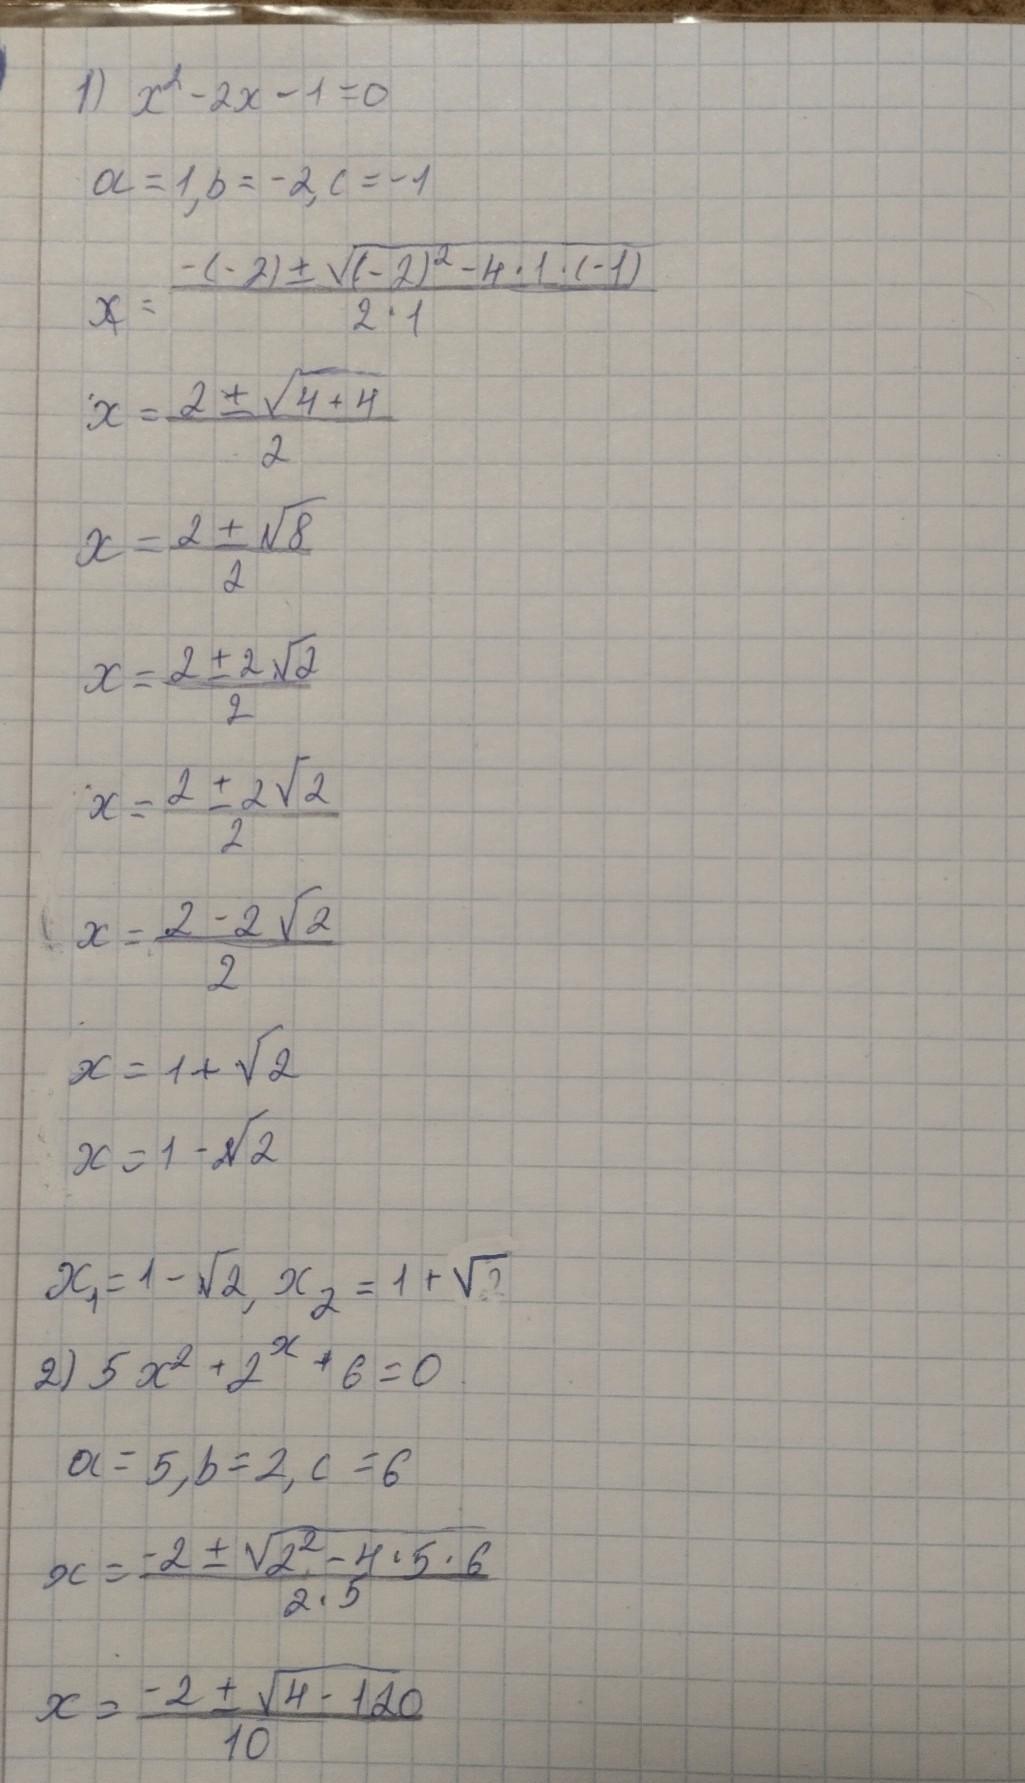 1) x² - 2x - 1 = 0
a = 1, b = -2, c = -1
x = (-(-2) ± √((-2)² - 4 · 1 · (-1))) / (2 · 1)
x = (2 ± √(4 + 4)) / 2
x = (2 ± √8) / 2
x = (2 ± 2√2) / 2
x = (2 ± 2√2) / 2
x = (2 - 2√2) / 2
x = 1 + √2
x = 1 - √2
x₁ = 1 - √2, x₂ = 1 + √2
2) 5x² + 2^x + 6 = 0
a = 5, b = 2, c = 6
x = (-2 ± √(2² - 4 · 5 · 6)) / (2 · 5)
x = (-2 ± √(4 - 120)) / 10